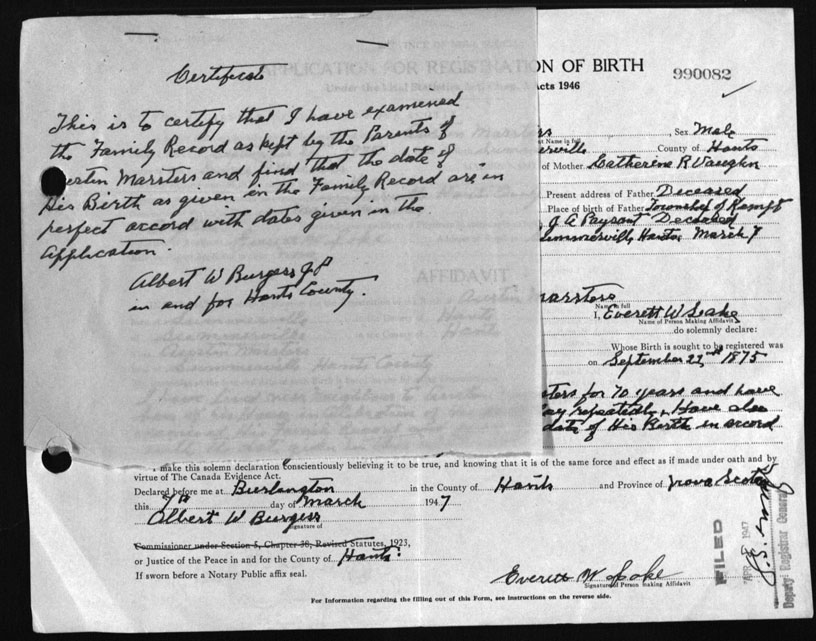 Certificate
This is to certify that I have examined
the Family Record as kept by the Parents of
Austin Marsters and find that the date of
His Birth as given in the Family Record are in
perfect accord with dates given in the
Application.
Albert W Burgess J P
in and for Hants County.
APPLICATION FOR REGISTRATION OF BIRTH
990082
Acts 1946
Sex Male
County of Hants
of Mother Catherine R Vaughn
Present address of Father Deceased
Place of birth of Father Township of Kempt
J A Paysant Deceased
Summerville Hants March 7
AFFIDAVIT
Marsters
Name in full
I, Everett W Lake
Name of Person Making Affidavit
do solemnly declare:
Whose Birth is sought to be registered was
on September 22nd 1875
sters for 70 years and have
repeatedly. Have also
date of His Birth in accord
, make this solemn declaration conscientiously believing it to be true, and knowing that it is of the same force and effect as if made under oath and by
virtue of The Canada Evidence Act.
Declared before me at Burlington in the County of Hants and Province of Nova Scotia
this 7th day of March 1947
Albert W Burgess
Signature of
Commissioner under Section 5, Chapter 38, Revised Statutes, 1923,
or Justice of the Peace in and for the County of Hants.
If sworn before a Notary Public affix seal.
Everett W Lake
Signature of Person making Affidavit
For Information regarding the filling out of this Form, see instructions on the reverse side.
FILED
APR 1947
Deputy Registrar General